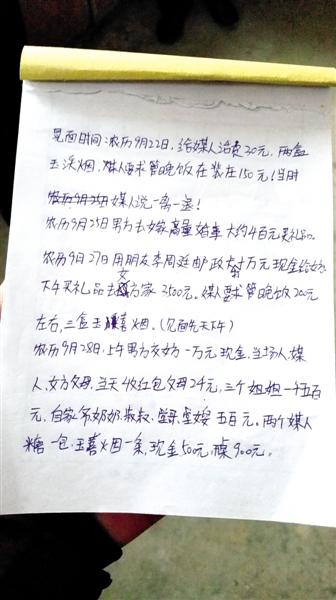 见面时间:农历9月22日,给媒人话费30元,两盒
玉溪烟,媒人要求管晚饭在装在150元(当时
农历9月25日媒人说一离一退!
农历9月25日男方去嫁商量婚事大约4百元买礼品。
农历9月27日用朋友李周廷邮政卡打1万元现金给女方
下午买礼品去女方家3500元。媒人要求管晚饭200元
左右,三盒玉喜烟。(见面先天下午)
农历9月28日,上午男方交女方一万元现金,当场人,媒
人,女方父母,当天4收红包父母24元,三个姐姐一千五百
元,自家爷奶奶,叔叔,五百元。两个媒人
糖一包,玉喜烟一条,现金50元,900元。